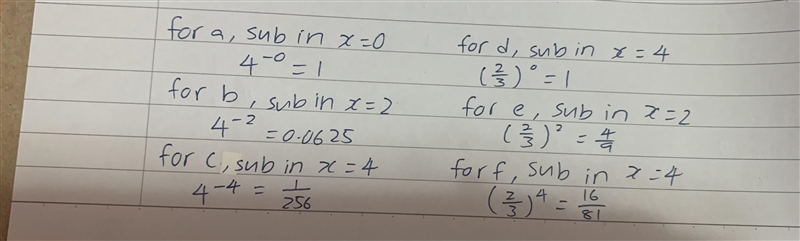 for a, sub in x=0
4^-0 = 1
for b, sub in x=2
4^-2 = 0.0625
for c, sub in x=4
4^-4 = 1/256
for d, sub in x=4
(2/3)^0 = 1
for e, sub in x=2
(2/3)^2 = 4/9
for f, sub in x=4
(2/3)^4 = 16/81